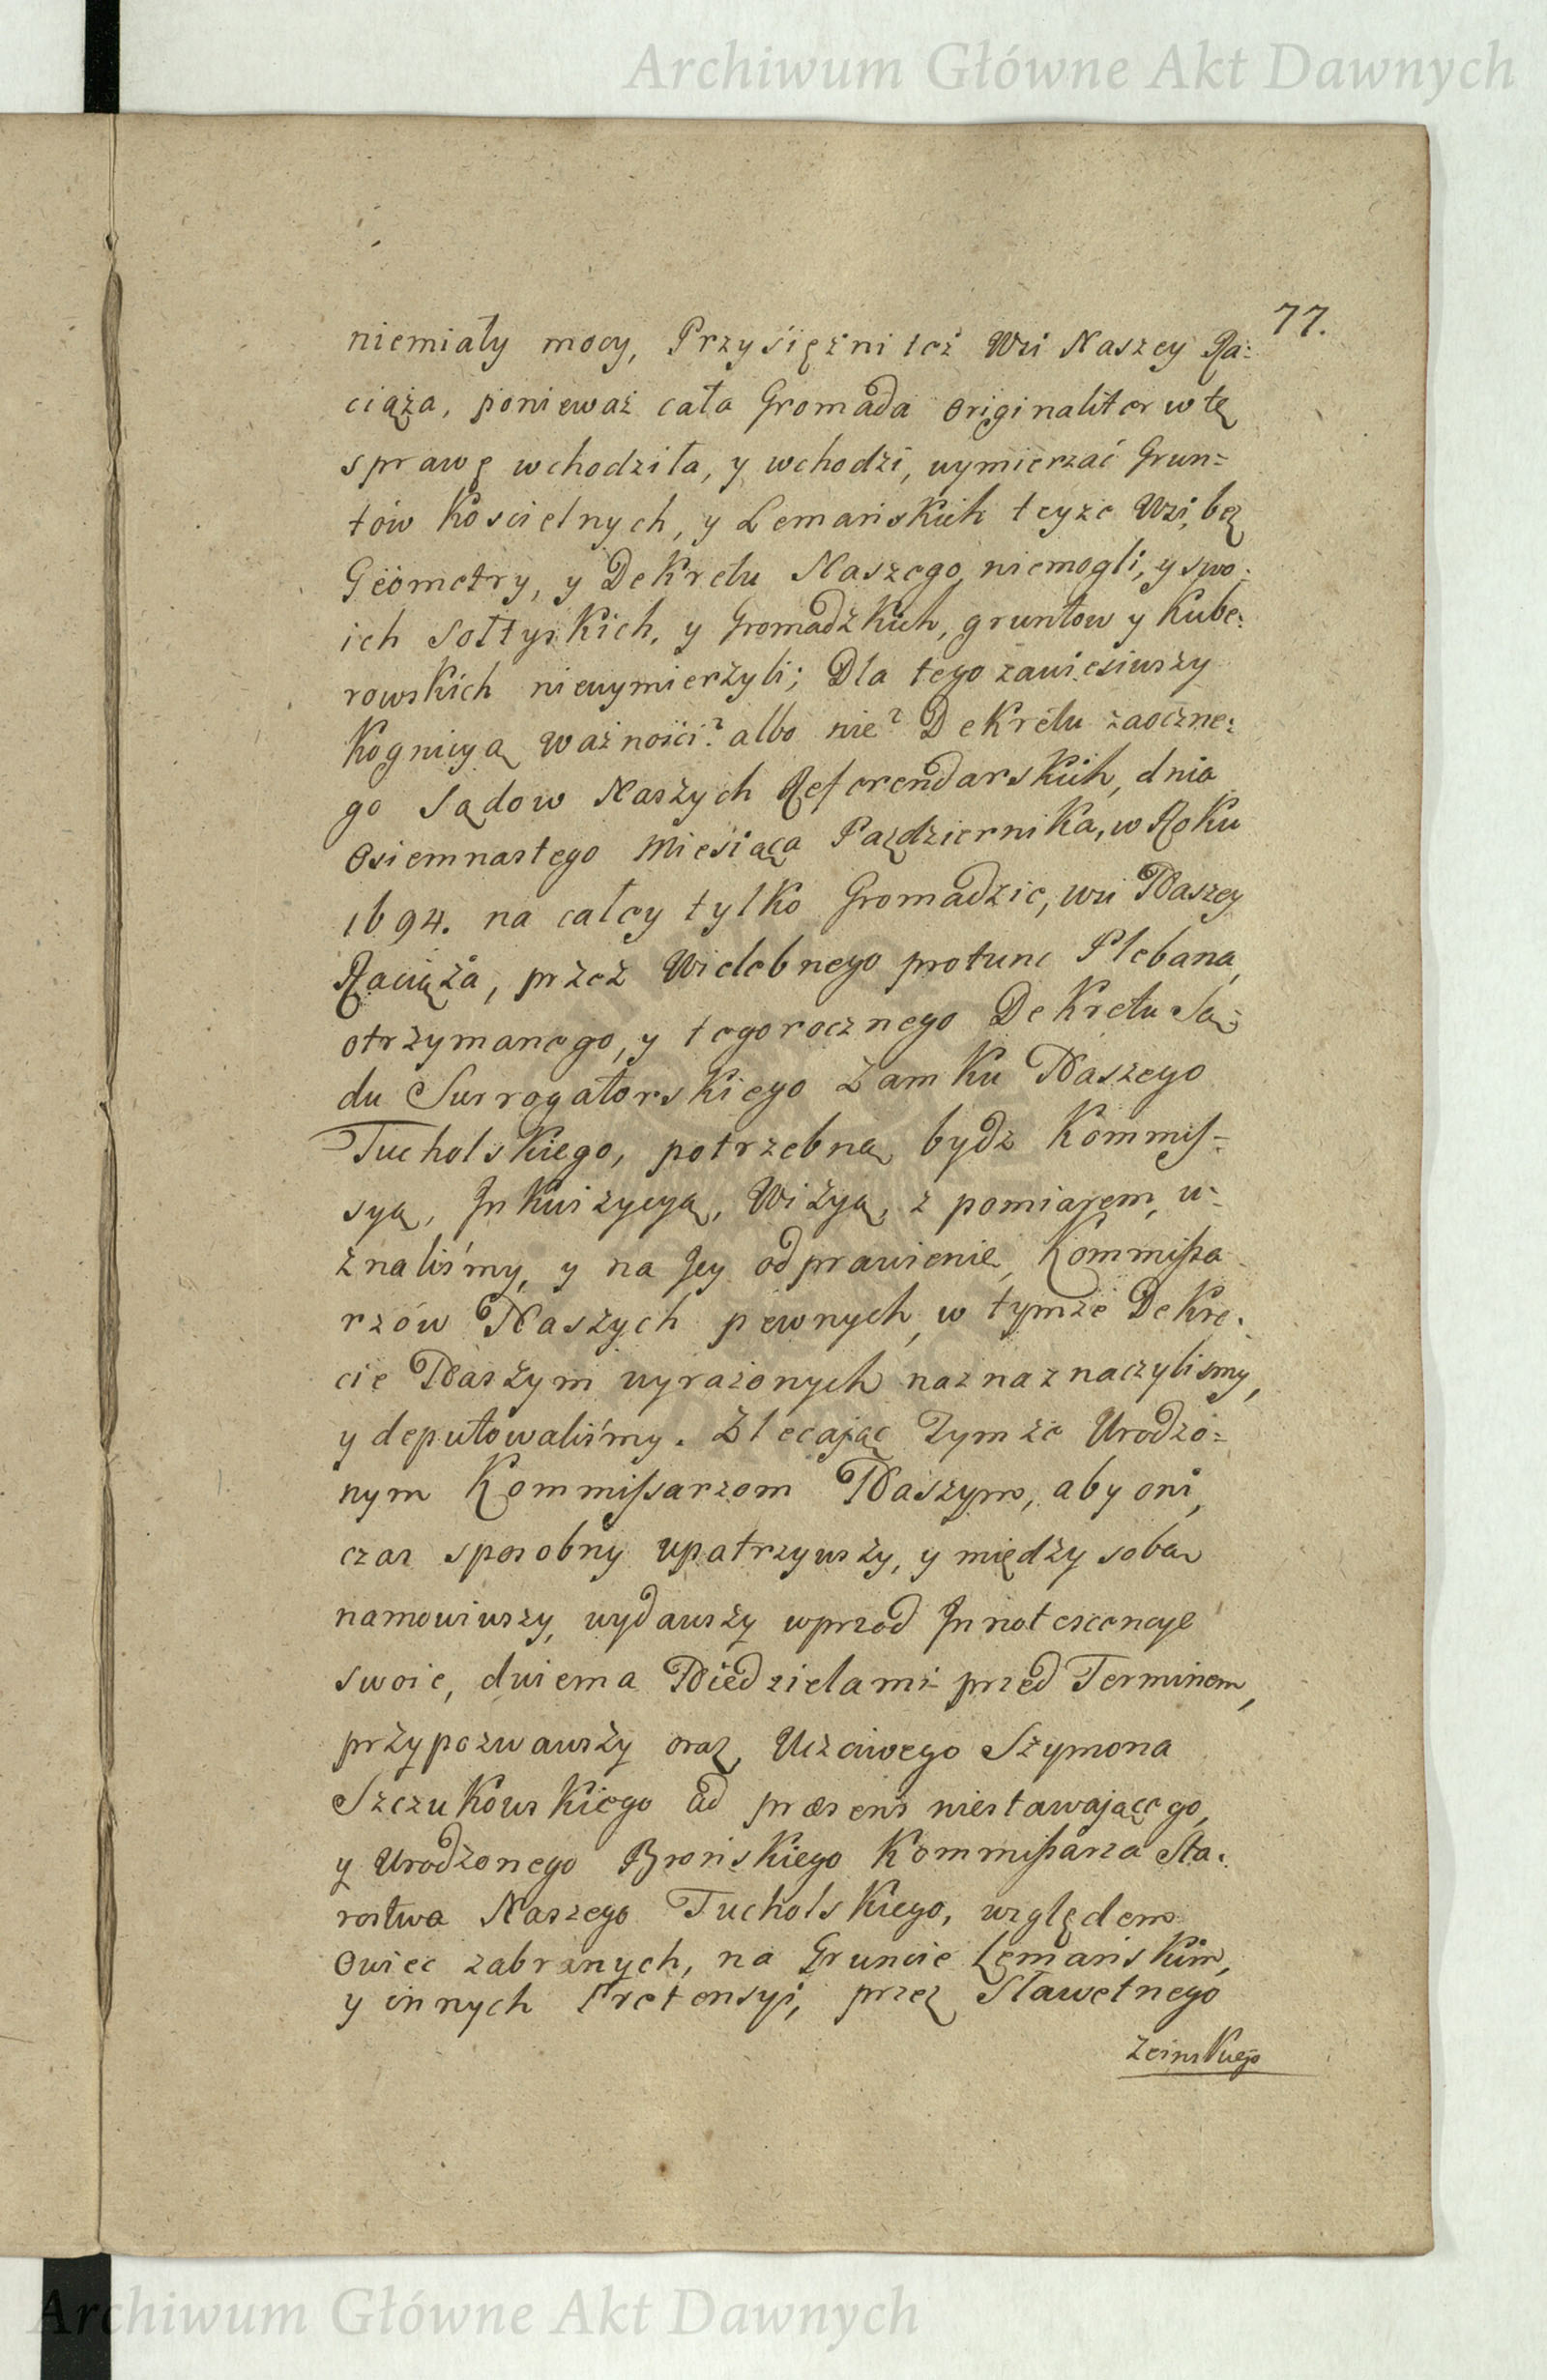 Archiwum Główne Akt Dawnych
77.
niemiały mocy, Przysiężni też Wsi Naszey Ra:
ciąża, ponieważ cała Gromada originaliter w tę
sprawę wchodziła, y wchodzi, wymierzać Grun=
tów Kościelnych, y Lemańskich teyże Wsi, bez
Geometry, y Dekretu Naszego, niemogli, y swo:
ich Sołtyskich, y Gromadzkich, gruntow y Kube:
rowskich niewymierzyli; Dla tego zawiesiwszy
Kognicyą ważności? albo nie? Dekretu zaoczne:
go Sądow Naszych Referendarskich, dnia
Osiemnastego Miesiąca Pazdziernika, w Roku
1694. na całey tylko Gromadzie, wsi Naszey
Raciąża, przez Wielebnego protunc Plebana,
otrzymanego, y tegorocznego Dekretu Są:
du Surrogatorskiego Zamku Naszego
Tucholskiego, potrzebną bydz Kommis=
syą, Inkwizycyą, Wizyą, z pomiarem, u=
znaliśmy, y na Jey odprawienie, Kommissa
rzów Naszych pewnych, w tymże Dekre:
cie Naszym wyrażonych naznaznaczylismy,
y deputowaliśmy. Zlecając Tymże Urodzo=
nym Kommissarzom Naszym, aby oni,
czas sposobny upatrzywszy, y między sobą
namowiwszy, wydawszy wprzod Innotescencye
swoie, dwiema Niedzielami przed Terminem,
przypozwawszy oraz, Uczciwego Szymona
Szczukowskiego ad præsens niestawającego,
y Urodzonego Brońskiego Kommissarza Sta:
rostwa Naszego Tucholskiego, względem
Owiec zabranych, na Gruncie Lemańskim,
y innych Pretensyi, przez Sławetnego
Archiwum Główne Akt Dawnych